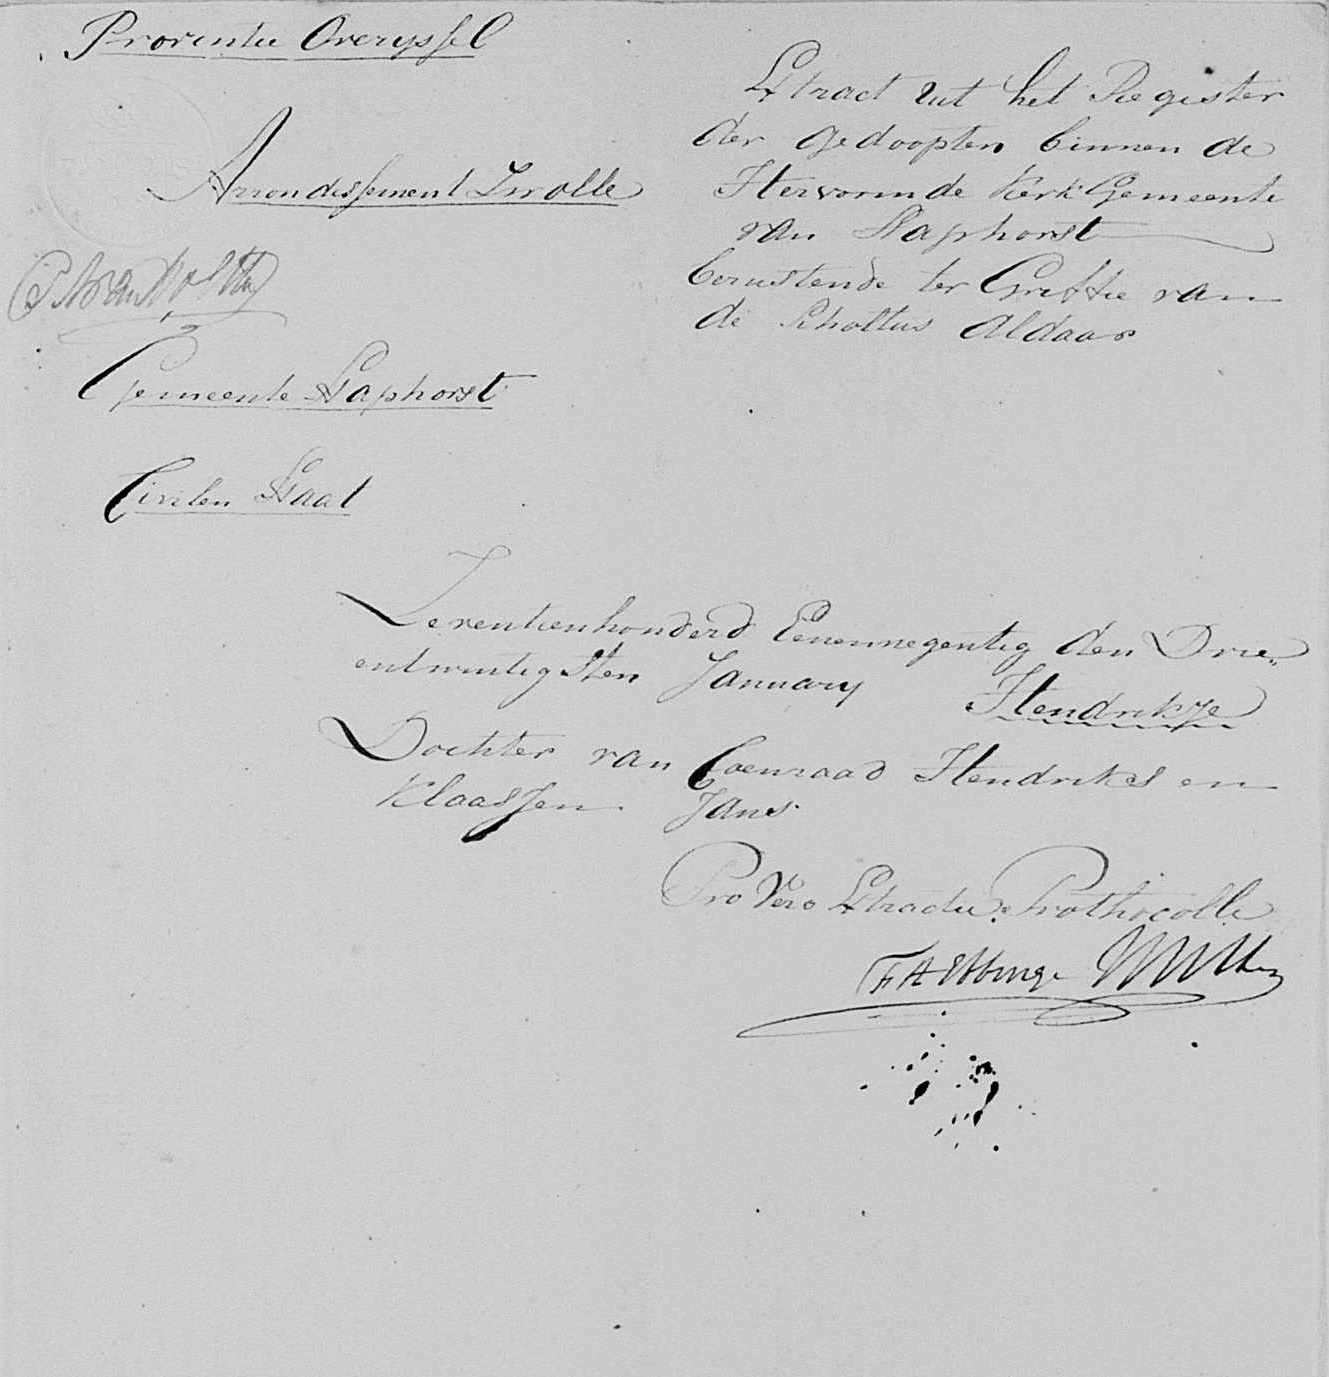 Provintie Overyssel
Arrondissement Zwolle
Gemeente Staphorst
Civilen Staat
Extract uit het Register
der gedoopten binnen de
Hervormde Kerk Gemeente
van Staphorst
berustende ter Griffie van
de Scholtus Aldaar
Zeventienhonderd Eenennegentig den Drie„
entwintigsten January Hendrikje
Dochter van Coenraad Hendriks en
Klaassjen Jans
Pro Vero Extractu Prothocolli
F A Ebbinge